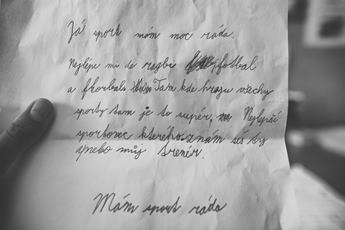 Já sport mám moc ráda.
Nejlépe mi de regbi fotbal
a florbal Tam kde hraju všechy
sporty tam je to supér, Nejlepší
sportovec kterého znám seš ty
anebo můj trenér.
Mám sport ráda